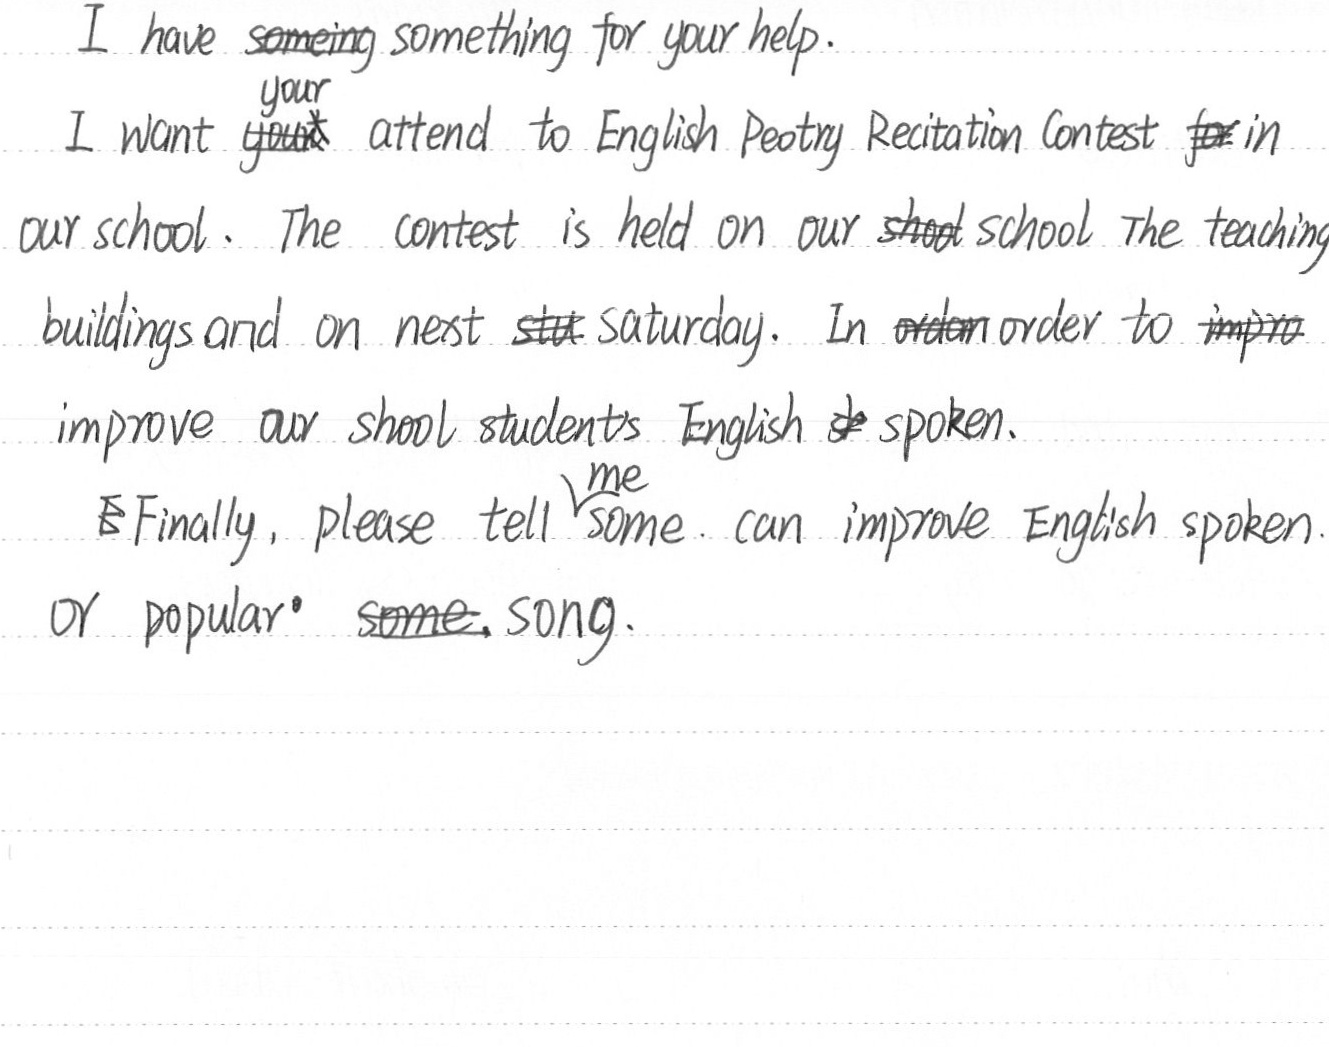 I have someing something for your help.
I want your attend to English Peotry Recitation Contest for in
our school. The contest is held on our shool school The teaching
buildings and on next stu saturday. In ordan order to impro
improve our shool students English spoken.
Finally, please tell me some. can improve English spoken.
or popular. some. song.